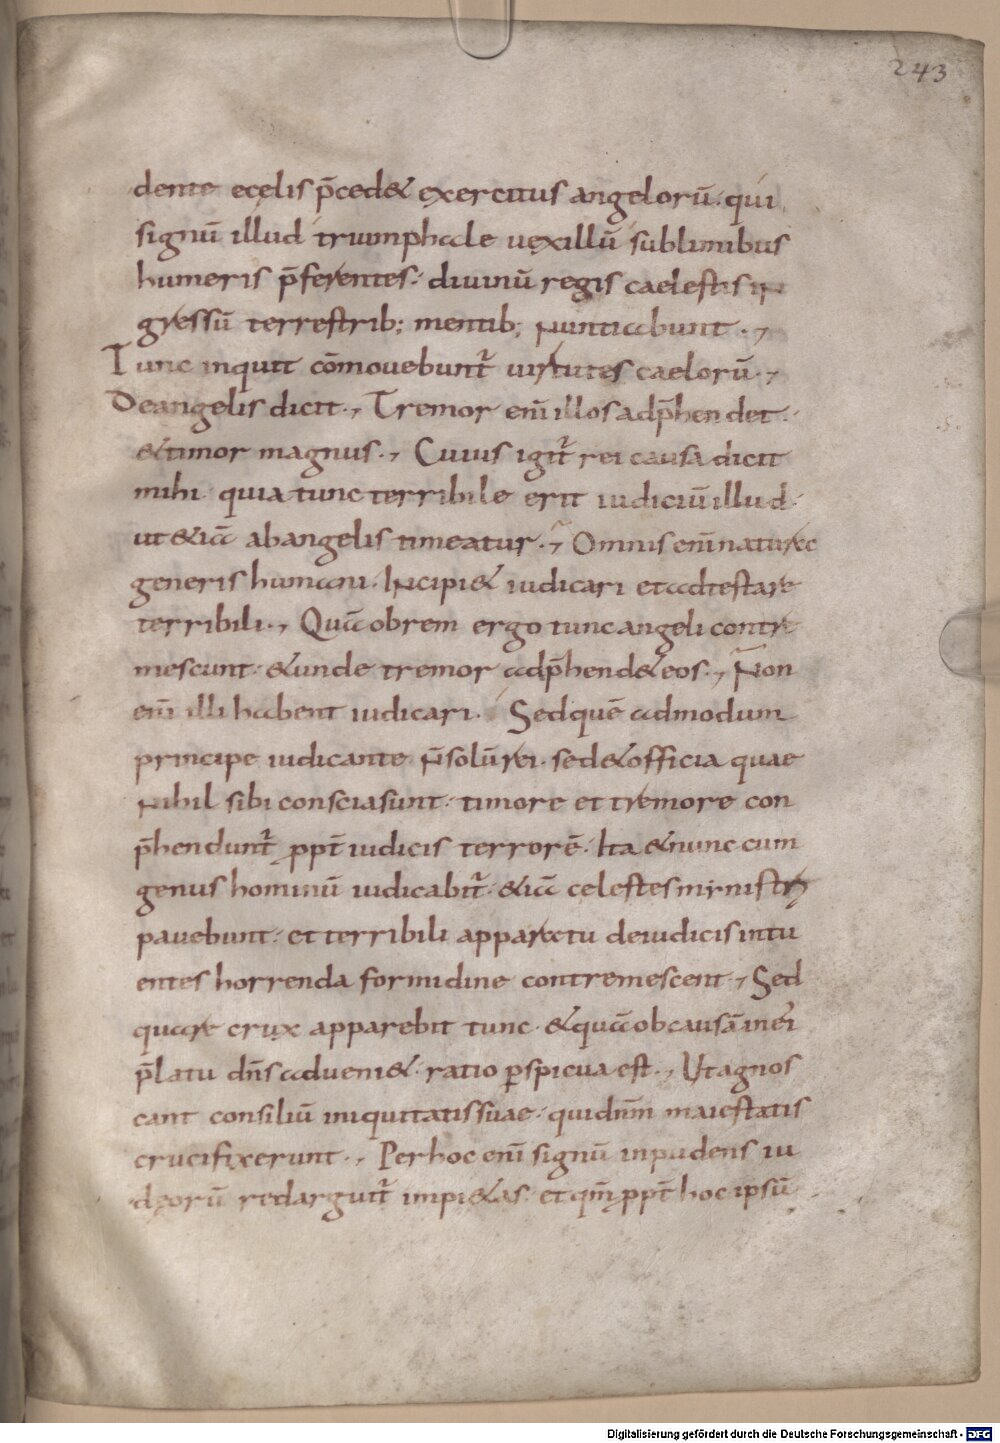 243
dente ecęlis p̄ced& exercitus angelorū. qui
signū illud triumphale uexillū sublimibus
humeris p̄ferentes. diuinū regis caelestis in
gressū terrestrib; mentib; nuntiabunt.,
Tunc inquit cōmouebunt̄ uirtutes caelorū.,
De angelis dicit., Tremor eni̅ illos adp̄hendet.
& timor magnus., Cuius igit̄ rei causa dicit
mihi quia tunc terribile erit iudiciū illud.
ut & iā ab angelis timeatur., Omnis eni̅ naturae
generis humani. Incipi& iudicari et adtestare
terribili., Quā obrem ergo tunc angeli contre
mescunt. & unde tremor adp̄hend& eos., Non
eni̅ illi habent iudicari. Sed quē admodum
principe iudicante n̄ solū rei. sed & officia quae
nihil sibi conscia sunt. timore et tremore con
p̄hendunt̄ ꝓpt̄ iudicis terrorē. Ita & nunc cum
genus hominū iudicabit̄. & iā celestes ministri
pauebunt. et terribili apparectu de iudicis intu
entes horrenda formidine contremescent., Sed
quare crux apparebit tunc. & quā ob causā in ei
p̄latu dn̄s adueni&. ratio ꝑspicua est., Ut agnos
cant consiliū iniquitatis suae. qui dn̄m maiestatis
crucifixerunt., Per hoc eni̅ signū inpudens iu
dęorū redarguit̄ impi&as. et qm̄ ꝓpt̄ hoc ipsū
Digitalisierung gefördert durch die Deutsche Forschungsgemeinschaft - DFG